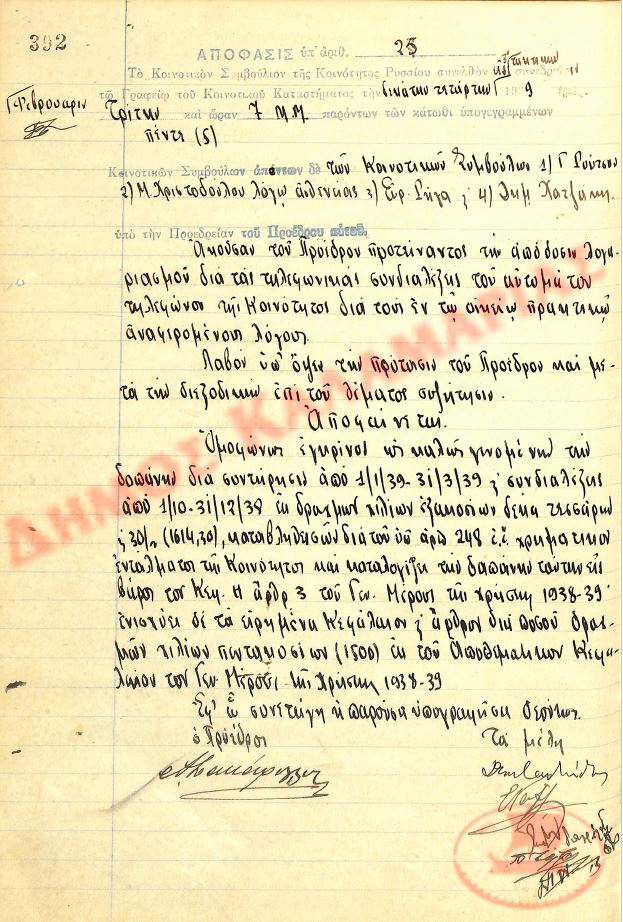 392
ΑΠΟΦΑΣΙΣ ὑπ' ἀριθ. 25
Τὸ Κοινοτικὸν Συμβούλιον τῆς Κοινότητος Ρυσσίου συνελθὸν εἰς τακτικὴν συνεδρίασιν
τῷ Γραφείῳ τοῦ Κοινοτικοῦ Καταστήματος τὴν εἰκάτην τετάρτην 1939 ἡμέραν
Φεβρουαρίου
Τρίτην καὶ ὥραν 7 Μ.Μ. παρόντων τῶν κάτωθι ὑπογεγραμμένων
πέντε (5)
Κοινοτικῶν Συμβούλων ἀπόντων δὲ τῶν Κοινοτικῶν Συμβούλων 1) Γ Ρούτσου
2) Μ. Χριστοδούλου λόγῳ ἀσθενείας 3) Εὐρ. Ρήγα & 4) Δημ. Χατζάκη.
ὑπὸ τὴν Προεδρείαν τοῦ Προέδρου αὐτοῦ.
Ἀκοῦσαν τοῦ Προέδρου προτείναντος τὴν ἀπόδοσιν λογα-
ριασμοῦ διὰ τὰς τηλεφωνικὰς συνδιαλέξης τοῦ αὐτομάτου
τηλεφώνου τῆς Κοινότητος διὰ τοὺς ἐν τῷ οἰκείῳ πρακτικῷ
ἀναφερομένους λόγους.
Λαβὸν ὑπ' ὄψει τὴν πρότασιν τοῦ Προέδρου καὶ με-
τὰ τὴν διεξοδικὴν ἐπὶ τοῦ θέματος συζήτησιν.
Ἀποφαίνεται.
Ὁμοφώνως ἐγκρίνει ὡς καλῶς γενομένην τὴν
δαπάνην διὰ συντήρησιν ἀπὸ 1/1/39-31/3/39 & συνδιαλέξης
ἀπὸ 1/10-31/12/38 ἐκ δραχμῶν χιλίων ἑξακοσίων δέκα τεσσάρων
& 30/00 (1614,30), καταβληθεισῶν διὰ τοῦ ὑπ' ἀριθ 248 ἐ.ἔ. χρηματικοῦ
ἐντάλματος τῆς Κοινότητος καὶ καταλογίζει τὴν δαπάνην ταύτην εἰς
βάρος τοῦ Κεφ. Η ἄρθρ 3 τοῦ Γεν. Μέρους τῆς χρήσης 1938-39
ἐνισχύει δὲ τὰ εἰρημένα Κεφάλαιον & ἄρθρον διὰ ποσοῦ δραχ-
μῶν χιλίων πεντακοσίων (1500) ἐκ τοῦ Ἀποθεματικοῦ Κεφα-
λαίου τοῦ Γεν. Μέρους τῆς Χρήσης 1938-39
Ἐφ' ᾧ συνετάγη ἡ παροῦσα ὑπογραφῆσα δεόντως.
ὁ Πρόεδρος Τὰ μέλη
ΔΗΜΟΣ ΚΑΛΑΜΑΡΙΑΣ